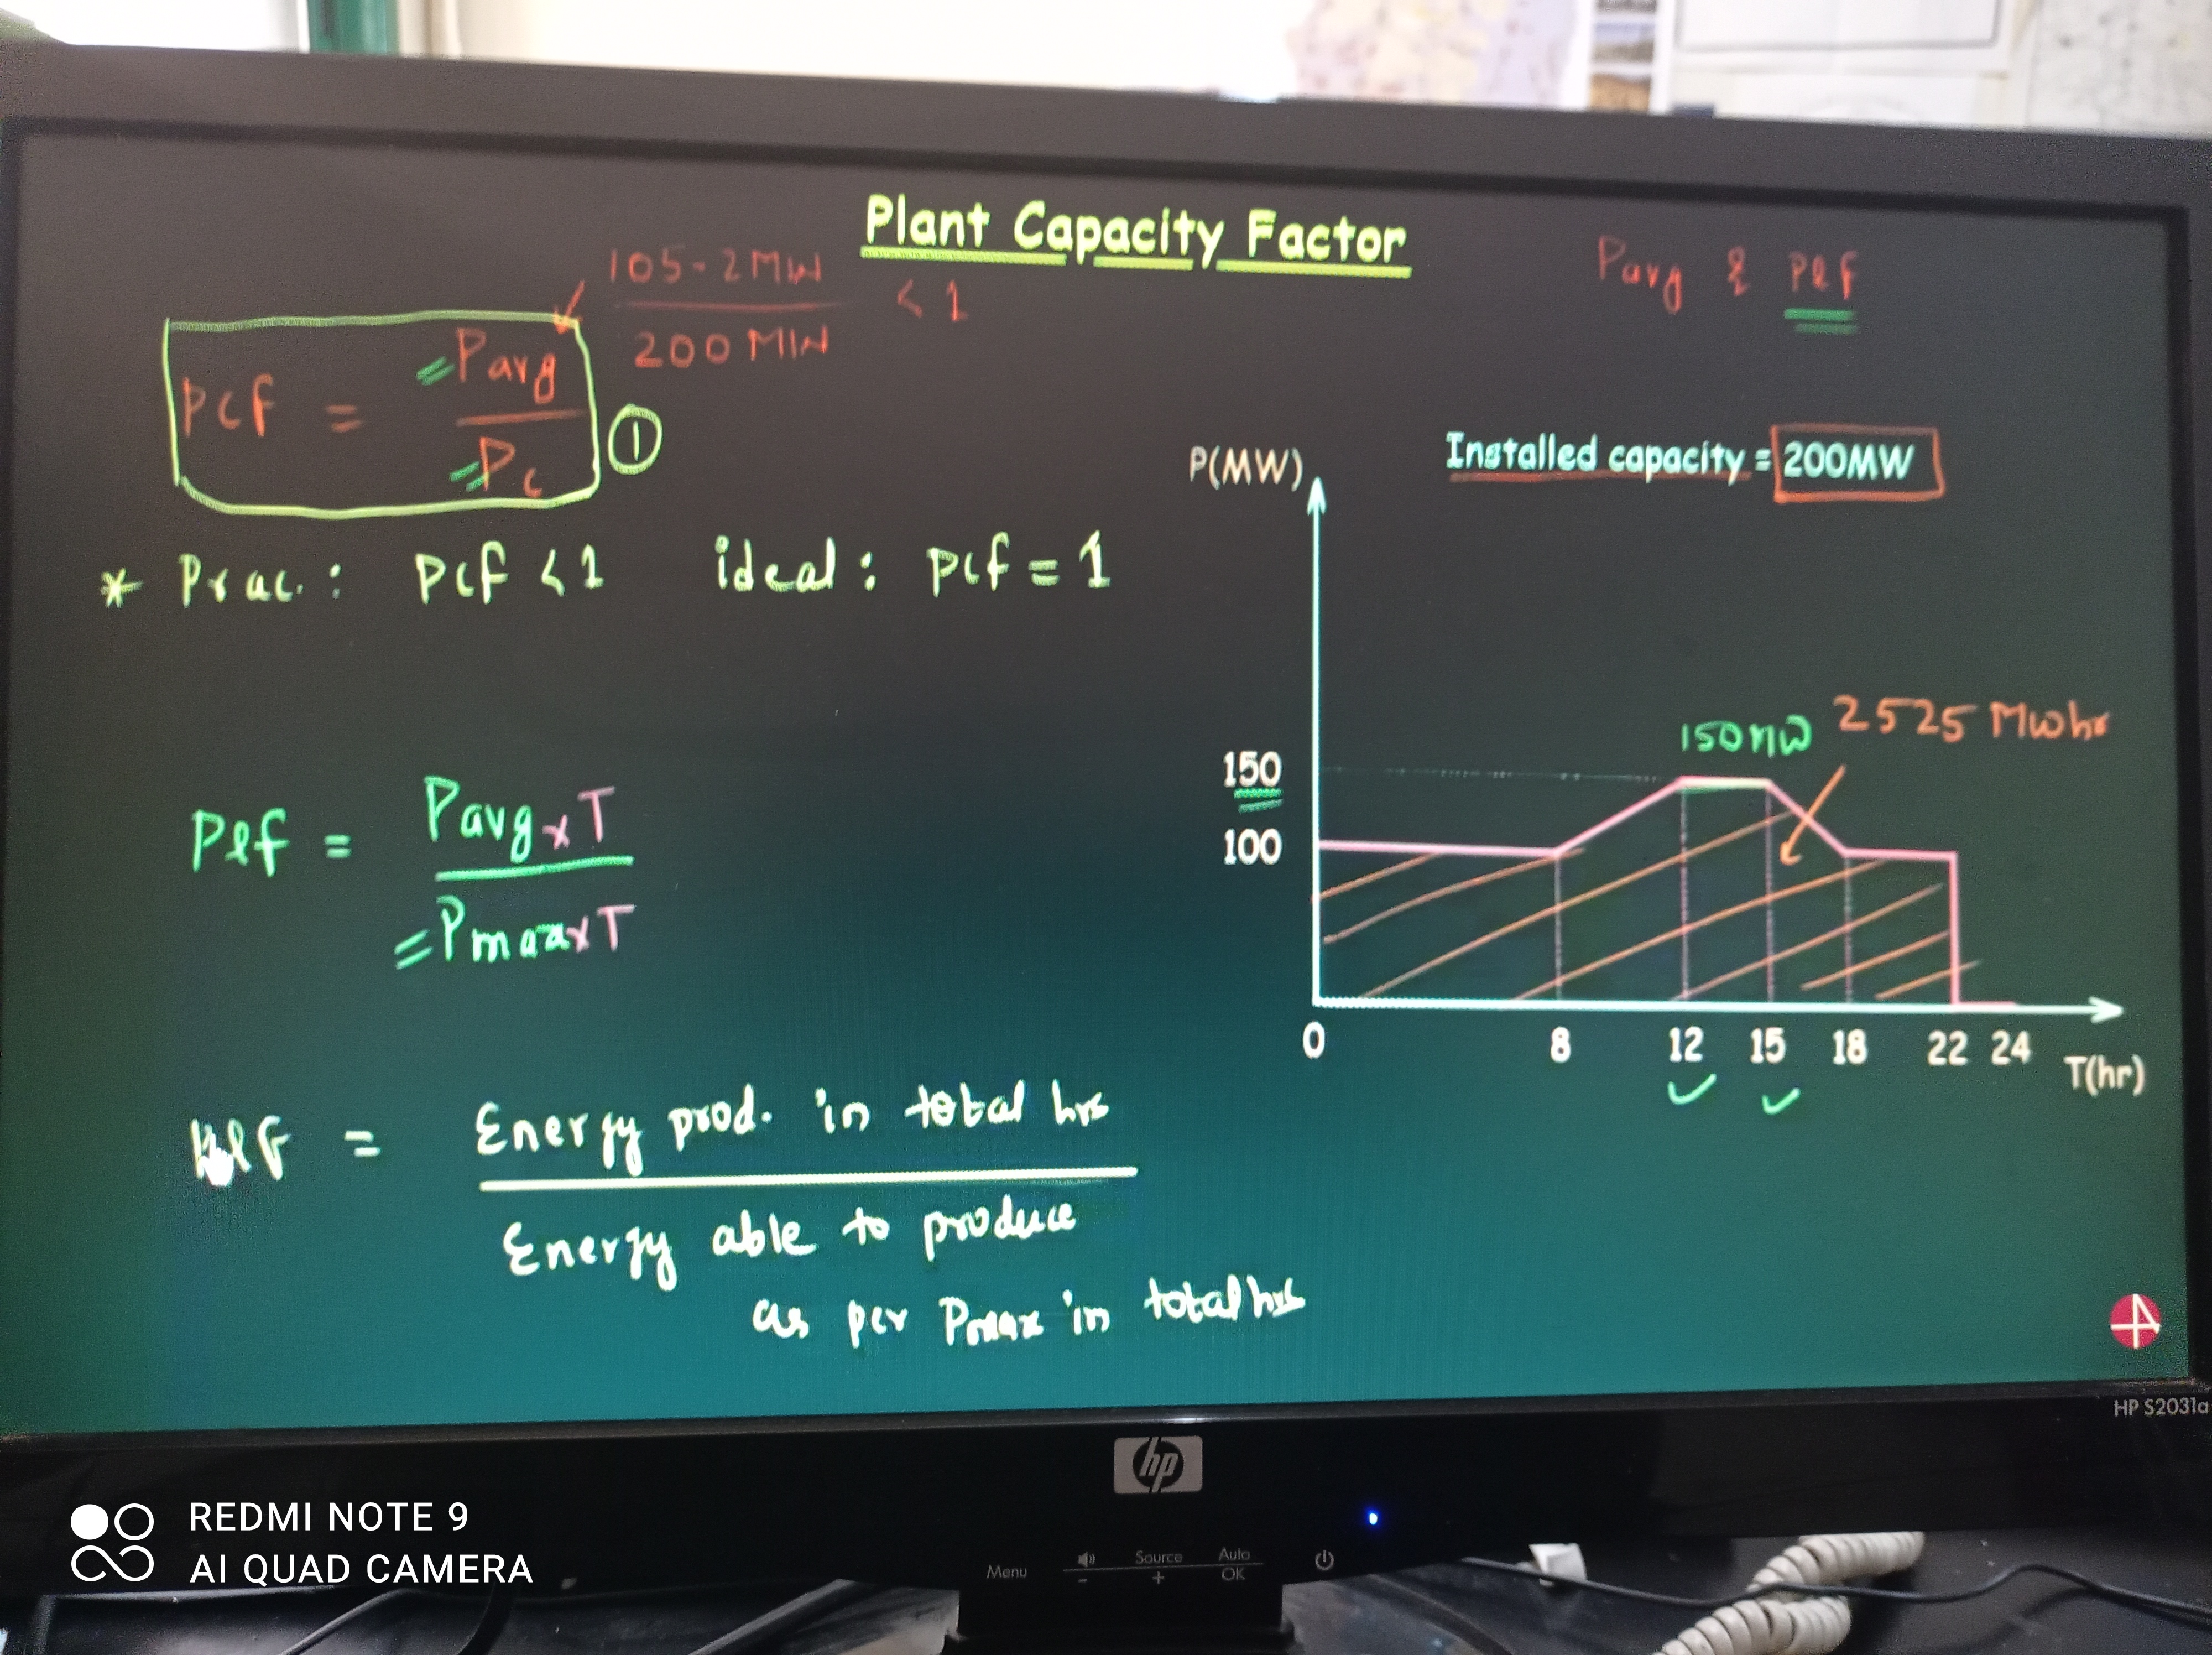 Plant Capacity Factor
Pavg & Plf
105.2 MW
200 MW
< 1
Pcf = Pavg
Pc
1
* Prac. : Pcf < 1 ideal : Pcf = 1
Installed capacity = 200MW
P(MW)
150MW
2525 Mwhr
150
100
0 8 12 15 18 22 24
T(hr)
Plf = Pavg x T
= Pmax x T
= Energy prod. in total hrs
Energy able to produce
as per Pmax in total hrs
HP S2031a
hp
Menu
- Source + Auto OK
REDMI NOTE 9
AI QUAD CAMERA